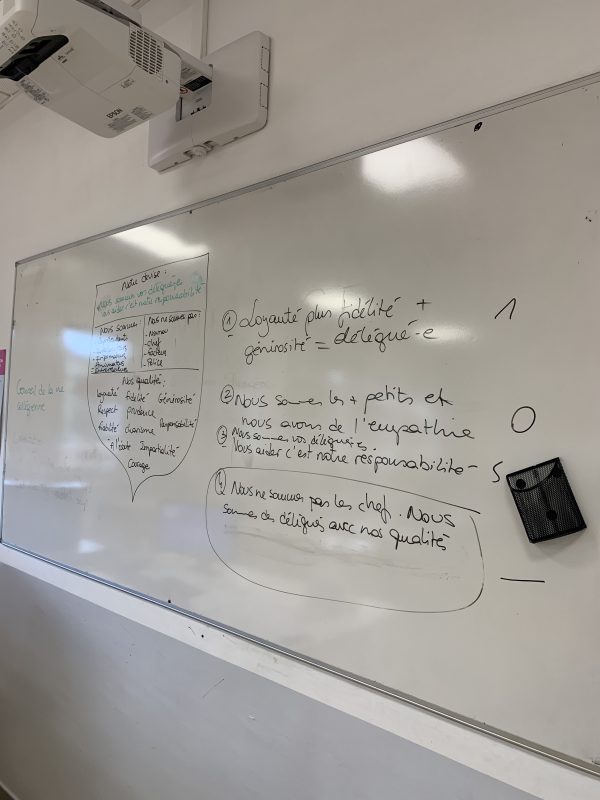 EPSON
Conseil de la vie
collégienne
Notre devise :
Nous sommes vos délégué-e-s
vous aider c'est notre responsabilité
Nous sommes :
Nous ne sommes pas :
- chef
- facteurs
- Police
Nos qualités :
Loyauté fidélité Générosité
Respect prudence
fiabilité charisme Responsabilité
à l'écoute Impartialité
Courage
① Loyauté plus fidélité +
génirosité = délégué-e
1
② Nous sommes les + petits et
nous avons de l'empathie
0
③ Nous sommes vos délégué-e-s.
Vous aider c'est notre responsabilité
5
④ Nous ne sommes pas les chef. Nous
sommes des délégués avec nos qualités
—